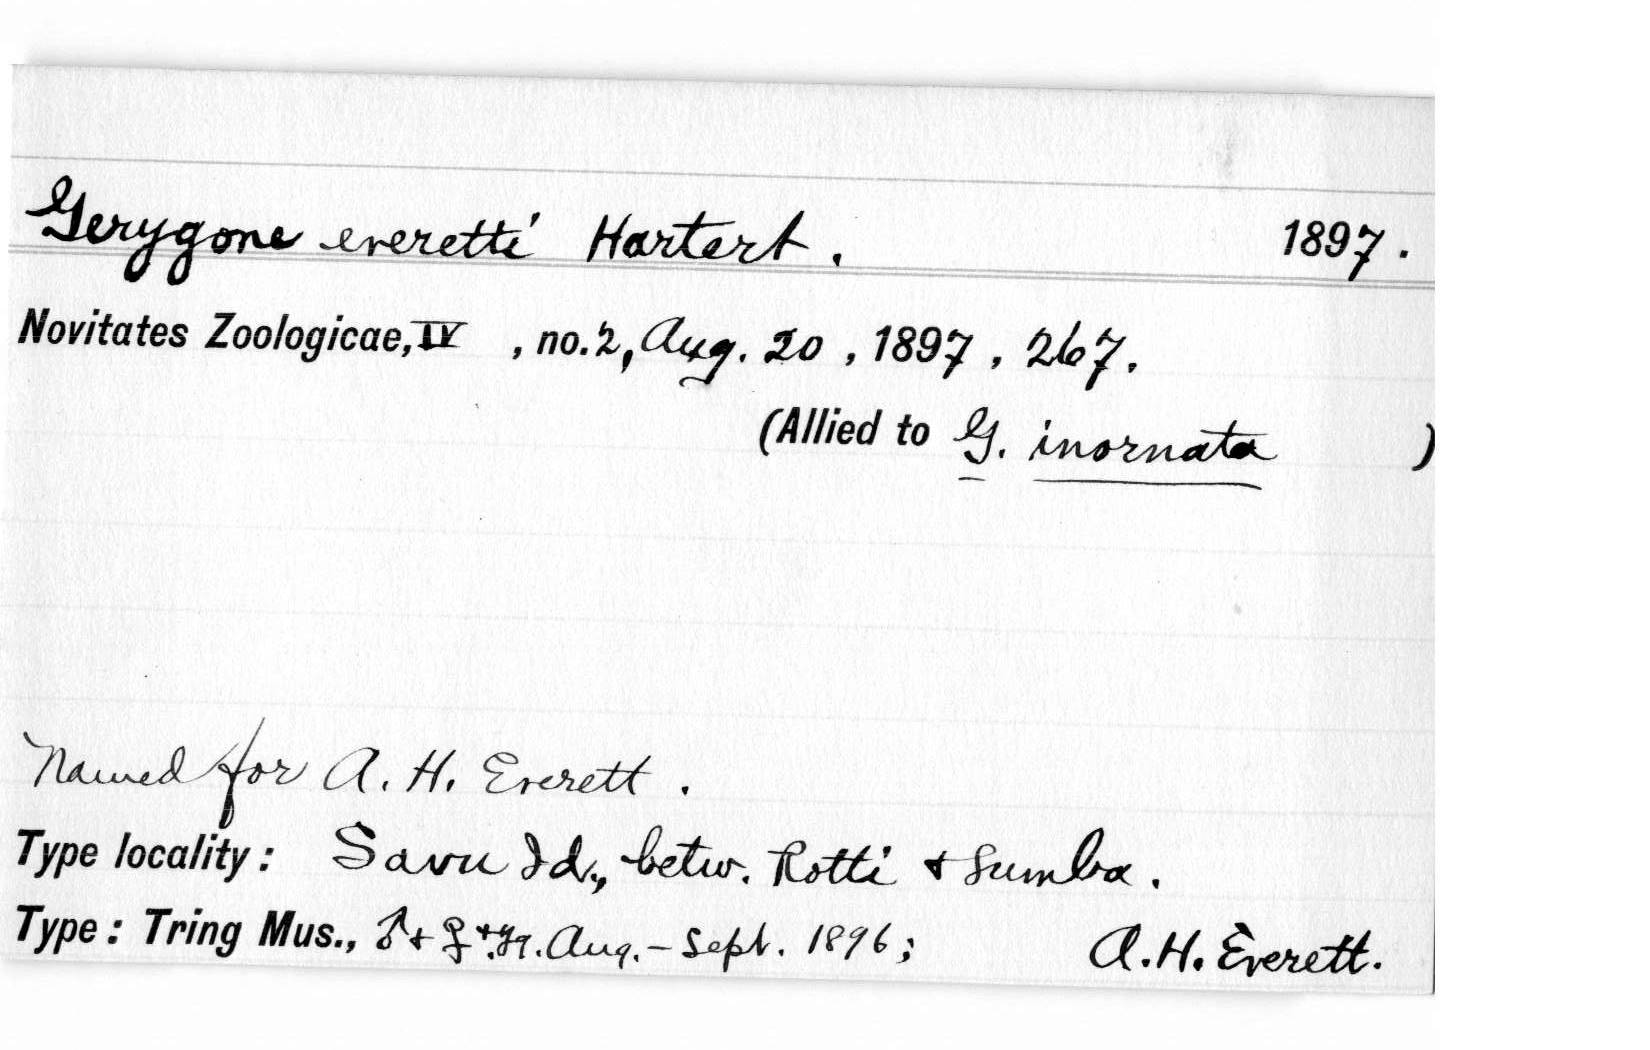 Gerygone everetti Hartert. 1897.
Novitates Zoologicae, IV, no. 2, Aug. 20, 1897, 267.
(Allied to G. inornata )
Named for A. H. Everett.
Type locality: Savu Id., betw. Rotti + Sumba.
Type: Tring Mus., ♂ + ♀ + Aug. - Sept. 1896; A. H. Everett.